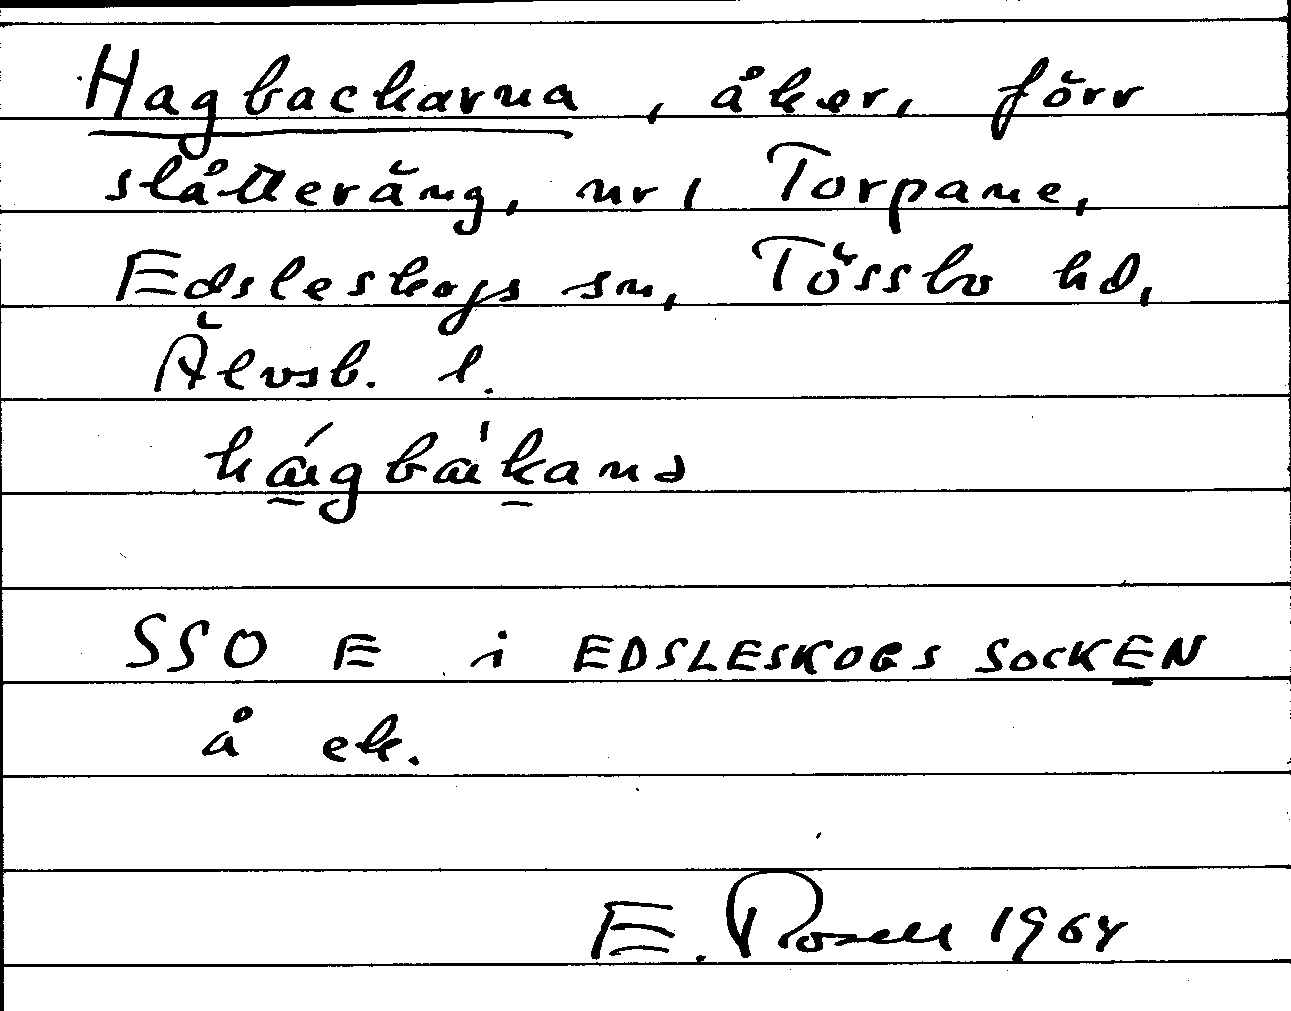 Hagbackarna, åker, förr
slåtteräng, nr 1 Torpane,
Edsleskogs sn, Tössbo hd,
Älvsb. l.
SSO E i EDSLESKOGS SOCKEN
å ek.
E. Rosell 1964